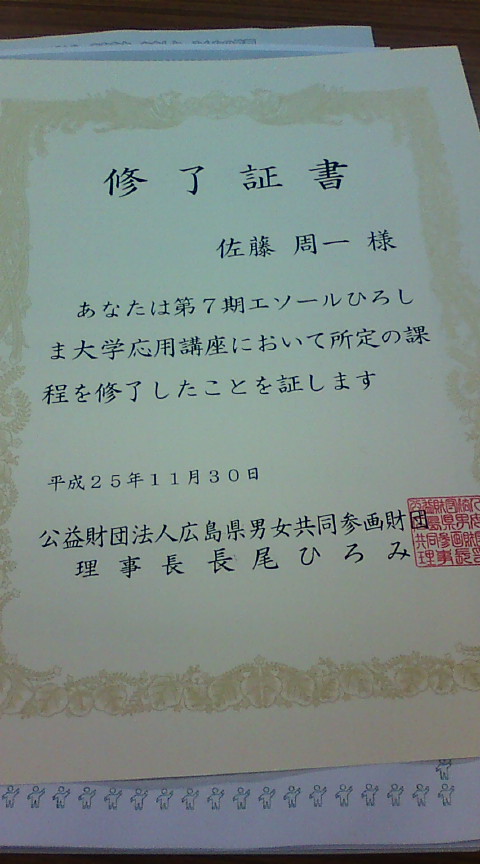 修了証書
佐藤 周一 様
あなたは第7期エソールひろし
ま大学応用講座において所定の課
程を修了したことを証します
平成25年11月30日
公益財団法人広島県男女共同参画財団
理事長 長尾ひろみ